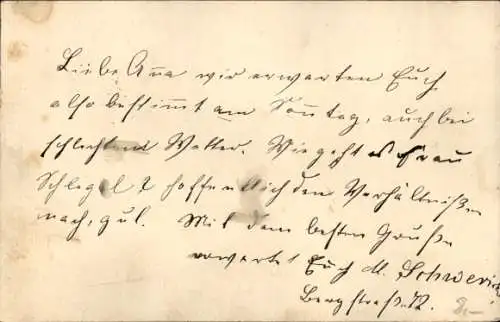 Liebe Anna wir erwarten Euch
also bestimmt am Sonntag, auch bei
schlechtem Wetter. Wie geht es Frau
Schlegel? hoffentlich den Verhältnißen
nach, gut. Mit dem besten Gruße
erwartet Euch M. Schwerick
Bergstraße 12.
8,-